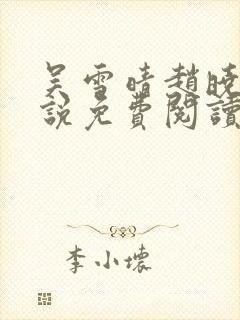 吴雪晴趙曉
說免費閱讀
李小壞